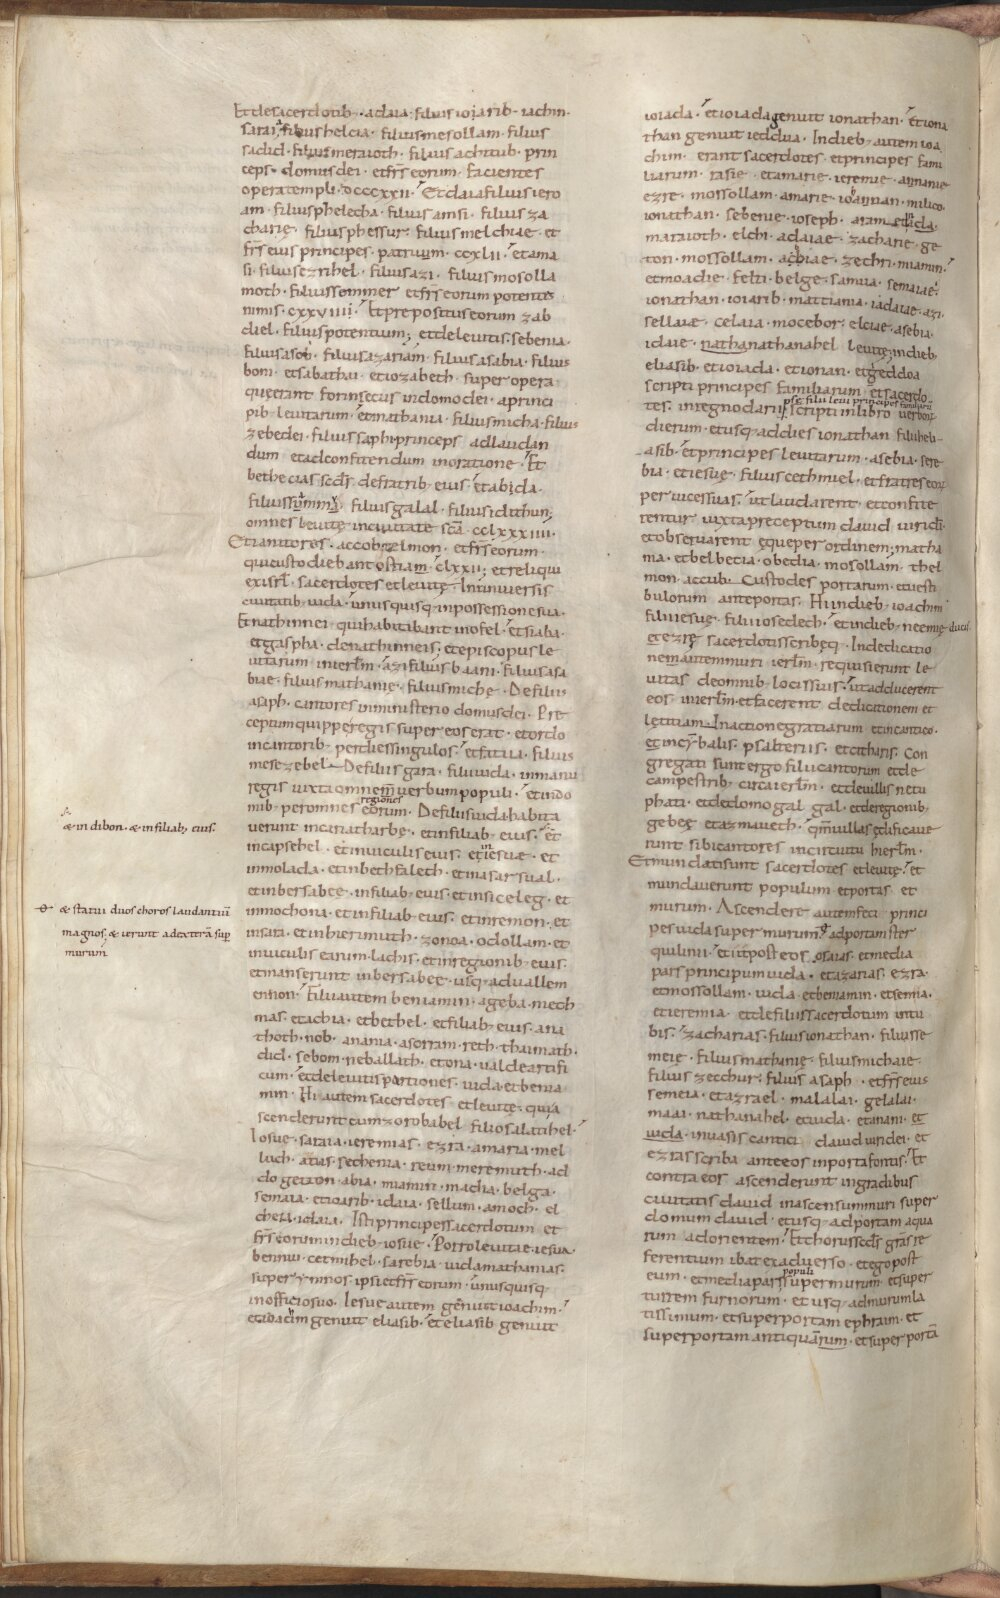 Et desacerdotib; adaia filius ioiarib iachin
sarai filius helcia filius mesollam filius
sadid filius meraioth filius achitub prin
ceps domus dei et frs eorum facientes
opera templi dcccxxii Et daia filius iero
am filius phelecha filius amsi filius za
charię filius phessur filius melchiae et
frs eius principes patruum ccxlii et ama
si filius ezrihel filius azi filius mosolla
moth filius semmer et frs eorum potentes
nimis cxxviiii Et prepositus eorum zab
diel filius potentium; et de leuitis sebenia
filius asob filius azariam filius asabia filius
boni et sabathai et iozabeth super opera
que erant forinsecus in domo dei a princi
pib leuitarum et mathania filius micha filius
zebedei filius saph princeps ad laudan
dum et ad confitendum in oratione Et
bethecias scds de fratrib eius et abida
filius symmy filius galal filius idithun;
omnes leuite in ciuitate sca cclxxxiiii
Et ianitores accob zelmon et frs eorum
qui custodiebant ostiam clxxii; et reliqui
ex isrl sacerdotes et leuitę In uniuersis
ciuitatib iuda unusquisq in possessione sua
Et nathinnei qui habitabant in ofel et siaba
et gaspha de nathinneis et episcopus le
uitarum in ierlm azi filius baani filius asa
biae filius mathanię filius michę De filiis
asaph cantores in ministerio domus dei Pre
ceptum quippe regis super eos erat et ordo
in cantorib per dies singulos et fatiia filius
mesezebel De filiis zara filii iuda in manu
regis iuxta omnem uerbum populi et in do
regiones
mib per omnes eorum De filiis iuda habita
uerunt in cariatharbe et in filiab eius Et
in capsehel et in uiculis eius et in iesuae et
in molada et in bethfalech et in asarsual
et in bersabee in filiab eius et in siceleg et
in mochona et in filiab eius et in remon et
in sara et in hierimuth zonoa odollam et
in uiculis earum lachis et in regionib eius
et manserunt in bersabee usq ad uallem
ennon Filii autem beniamin a geba mech
mas et achia et bethel et filiab eius ana
thoth nob anania asorram reth thaunath
did seboin neballath et ona ualde artifi
cum et de leuitis portiones iuda et benia
min Hi autem sacerdotes et leuite quia
scenderunt cum zorobabel filio salatihel
Iosue saraia ieremias ezra amaria mel
luch atus sechenia reum meremuth ad
do geiton abia miamin madia belga
semaia et ioarib idaia sellum amoch el
cheu idaia Isti principes sacerdotum et
frs eorum in dieb iosue Porro leuitae iesua
bennui cetmihel sarebia iuda mathanias
super ymnos ipsi et frs eorum unusquisq
in officio suo Iesue autem genuit ioachim
et ioacim genuit eliasib et eliasib genuit
ioiada et ioiada genuit ionathan et iona
than genuit ieddua In dieb autem ioa
chim erant sacerdotes et principes fami
liarum rasie et amarie ieremie annanie
ezre mossollam amarie iohannan milico
ionathan sebenie ioseph aram edi cla
maraioth elchi adaiae zacharie ge
ton mossollam achiae zechri miamin
et moadie felti belge samua semaiae
ionathan ioiarib mattiania iadaiae azi
sellaiae celaia mocebor elciae asebia
idaie nathanathanahel leuitę; in dieb
eliasib et ioiada et ionan et geddoa
scripti principes familiarum et sacerdo
pse filii leui principes familiarū
tes in regno darii scripti in libro uerborum
dierum et usq ad dies ionathan filii heli
asib et principes leuitarum asebia sere
bia et iesuę filius cethmiel et fratres eorum
per uices suas ut laudarent et confite
rentur iuxta preceptum dauid uiri di
et obseruarent ęque per ordinem; matha
ma et belbecia obedia mosollam thel
mon accub Custodes portarum et uesti
bulorum ante portas Hi in dieb ioachim
filii iesuę filii iosedech et in dieb neemię ducis
et ezrę sacerdotis scribęq In dedicatio
nem autem muri ierlm requisierunt le
uitas de omnib locis suis ut adducerent
eos in ierlm et facerent dedicationem et
lętitiam In actione gratiarum et in cantico
et in cymbalis psalteriis et citharis Con
gregati sunt ergo filii cantorum et de
campestrib circa ierlm et de uillis netu
phati et de domo gal gal et de regionib
gebee et azmaueth qm uillas ędificaue
runt sibi cantores in circuitu hierlm
Et mundati sunt sacerdotes et leuitę et
mundauerunt populum et portas et
murum Ascendere autem feci princi
pes iuda super murum ad portam ster
quilinii et iit post eos osaias et media
pars principum iuda et azarias ezra
et mossollam iuda et beniamin et semia
et ieremia et de filiis sacerdotum in tu
bis zacharias filius ionathan filius se
meie filius mathanię filius michaie
filius zecchur filius asaph et frs eius
semeia et azrael malalai gelalai
maai nathanahel et iuda et anani et
iuda in uasis cantici dauid uiri dei et
ezras scriba ante eos in porta fontis Et
contra eos ascenderunt in gradibus
ciuitatis dauid in ascensu muri super
domum dauid et usq ad portam aqua
rum ad orientem Et chorus scds gras re
ferentium ibat ex aduerso et ego post
populi
eum et media pars super murum et super
turrem furnorum et usq ad murum la
tissimum et super portam ephraim et
super portam antiquarum et super portā
& in dibon & in filiab; eius
& statui duos choros laudantiū
magnos & ierunt ad exterā sup
murum